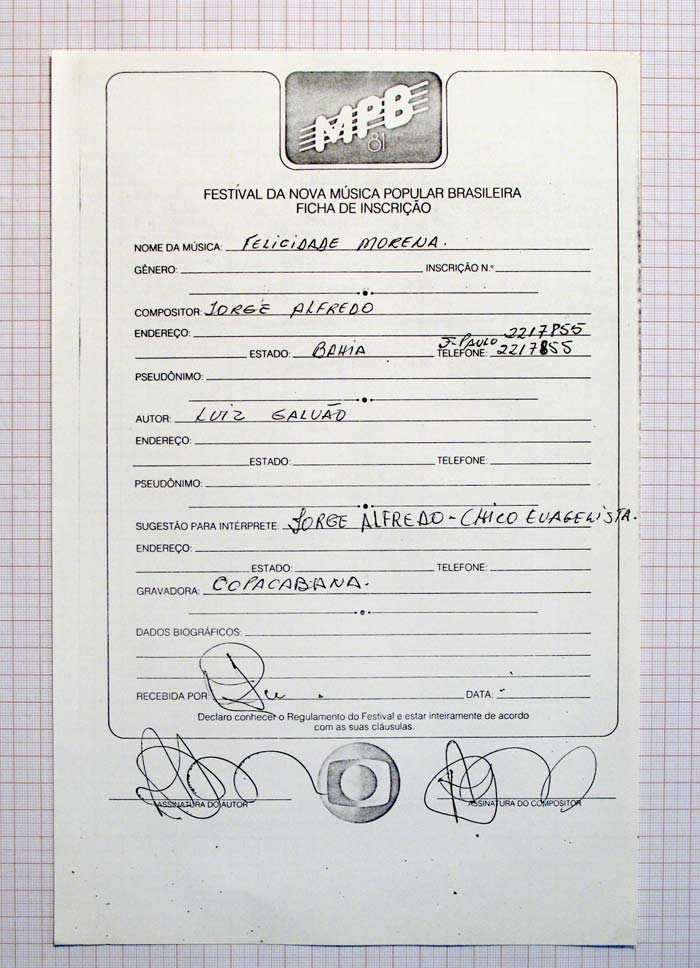 MPB
81
FESTÍVAL DA NOVA MÚSICA POPULAR BRASILEIRA
FICHA DE INSCRIÇÃO
NOME DA MÚSICA: FELICIDADE MORENA.
GÊNERO: INSCRIÇÃO N.º
COMPOSITOR: JORGE ALFREDO
ENDEREÇO: 2217855
ESTADO: BAHIA S. PAULO TELEFONE: 2217855
PSEUDÔNIMO:
AUTOR: LUIZ GALVÃO
ENDEREÇO:
ESTADO: TELEFONE:
PSEUDÔNIMO:
SUGESTÃO PARA INTÉRPRETE: JORGE ALFREDO - CHICO EVAGELISTA.
ENDEREÇO:
ESTADO: TELEFONE:
GRAVADORA: COPACABANA.
DADOS BIOGRÁFICOS:
RECEBIDA POR: DATA:
Declaro conhecer o Regulamento do Festival e estar inteiramente de acordo
com as suas cláusulas.
ASSINATURA DO AUTOR ASSINATURA DO COMPOSITOR